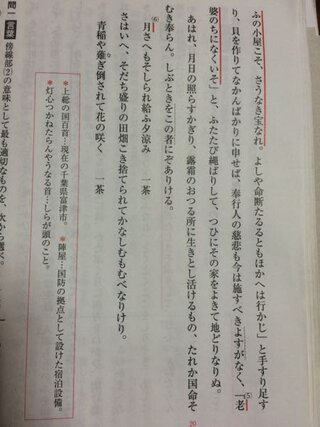 ふの小屋こそ、さうなき宝なれ。よしや命断たるるともほかへは行かじ」と手すり足す
り、貝を作りてなかんばかりに申せば、奉行人の慈悲も今は施すべきよすがなく、「老
婆のちになくいそ」と、ふたたび縄ばりして、つひにその家をよきて地どりなりぬ。
あはれ、月日の照らすかぎり、露霜のおつる所に生きとし活けるもの、たれか国命そ
むき奉らん。しぶときをこの者にぞありける。
月さへもそしられ給ふ夕涼み 一茶
さはいへ、そだち盛りの田畑こき捨てられてかなしむもむべなりけり。
青稲や薙ぎ倒されて花の咲く 一茶
(5)
(6)
20
*上総の国百首…現在の千葉県富津市。
*陣屋…国防の拠点として設けた宿泊設備。
*灯心つかねたらんやうなる首…しらが頭のこと。
問一 言葉
傍線部(2)の意味として最も適切なものを、次から選べ。